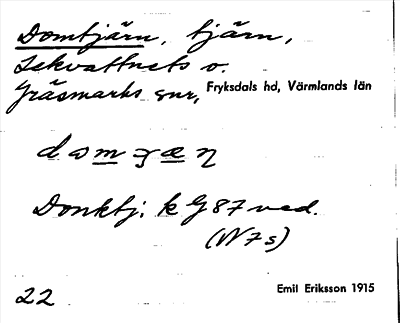 Domtjärn, tjärn,
Lekvattnets o.
Gräsmarks snr, Fryksdals hd, Värmlands län
Donktj. k G 87 v ed.
(N 7 s)
22 Emil Eriksson 1915